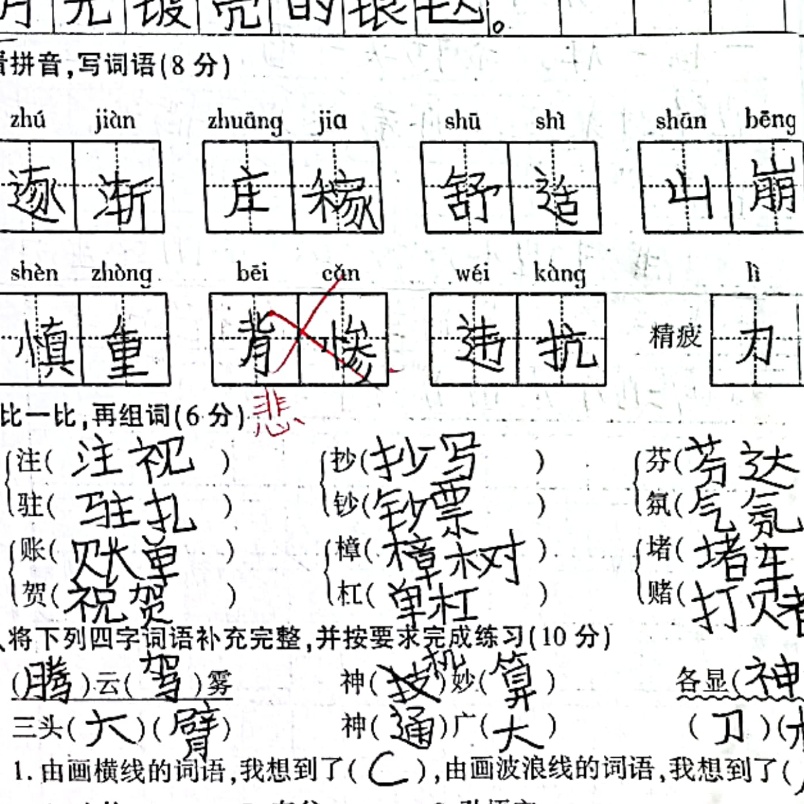 月光镀亮的银毯。
看拼音,写词语(8分)
zhú jiàn zhuāng jia shū shì shān bēng
逐渐 庄稼 舒适 山崩
shèn zhòng bēi cǎn wéi kàng lì
慎重 背惨 违抗 精疲力
悲
比一比,再组词(6分)
注(注视) 抄(抄写) 芬(芬达
驻(驻扎) 钞(钞票) 氛(气氛
账(账单) 樟(樟木对) 堵(堵车
贺(祝贺) 杠(单杠) 赌(打赌
将下列四字词语补充完整,并按要求完成练习(10分)
(腾)云(驾)雾 神(机)妙(算) 各显(神
三头(六)(臂) 神(通)广(大) (刀)(
1.由画横线的词语,我想到了(C),由画波浪线的词语,我想到了(